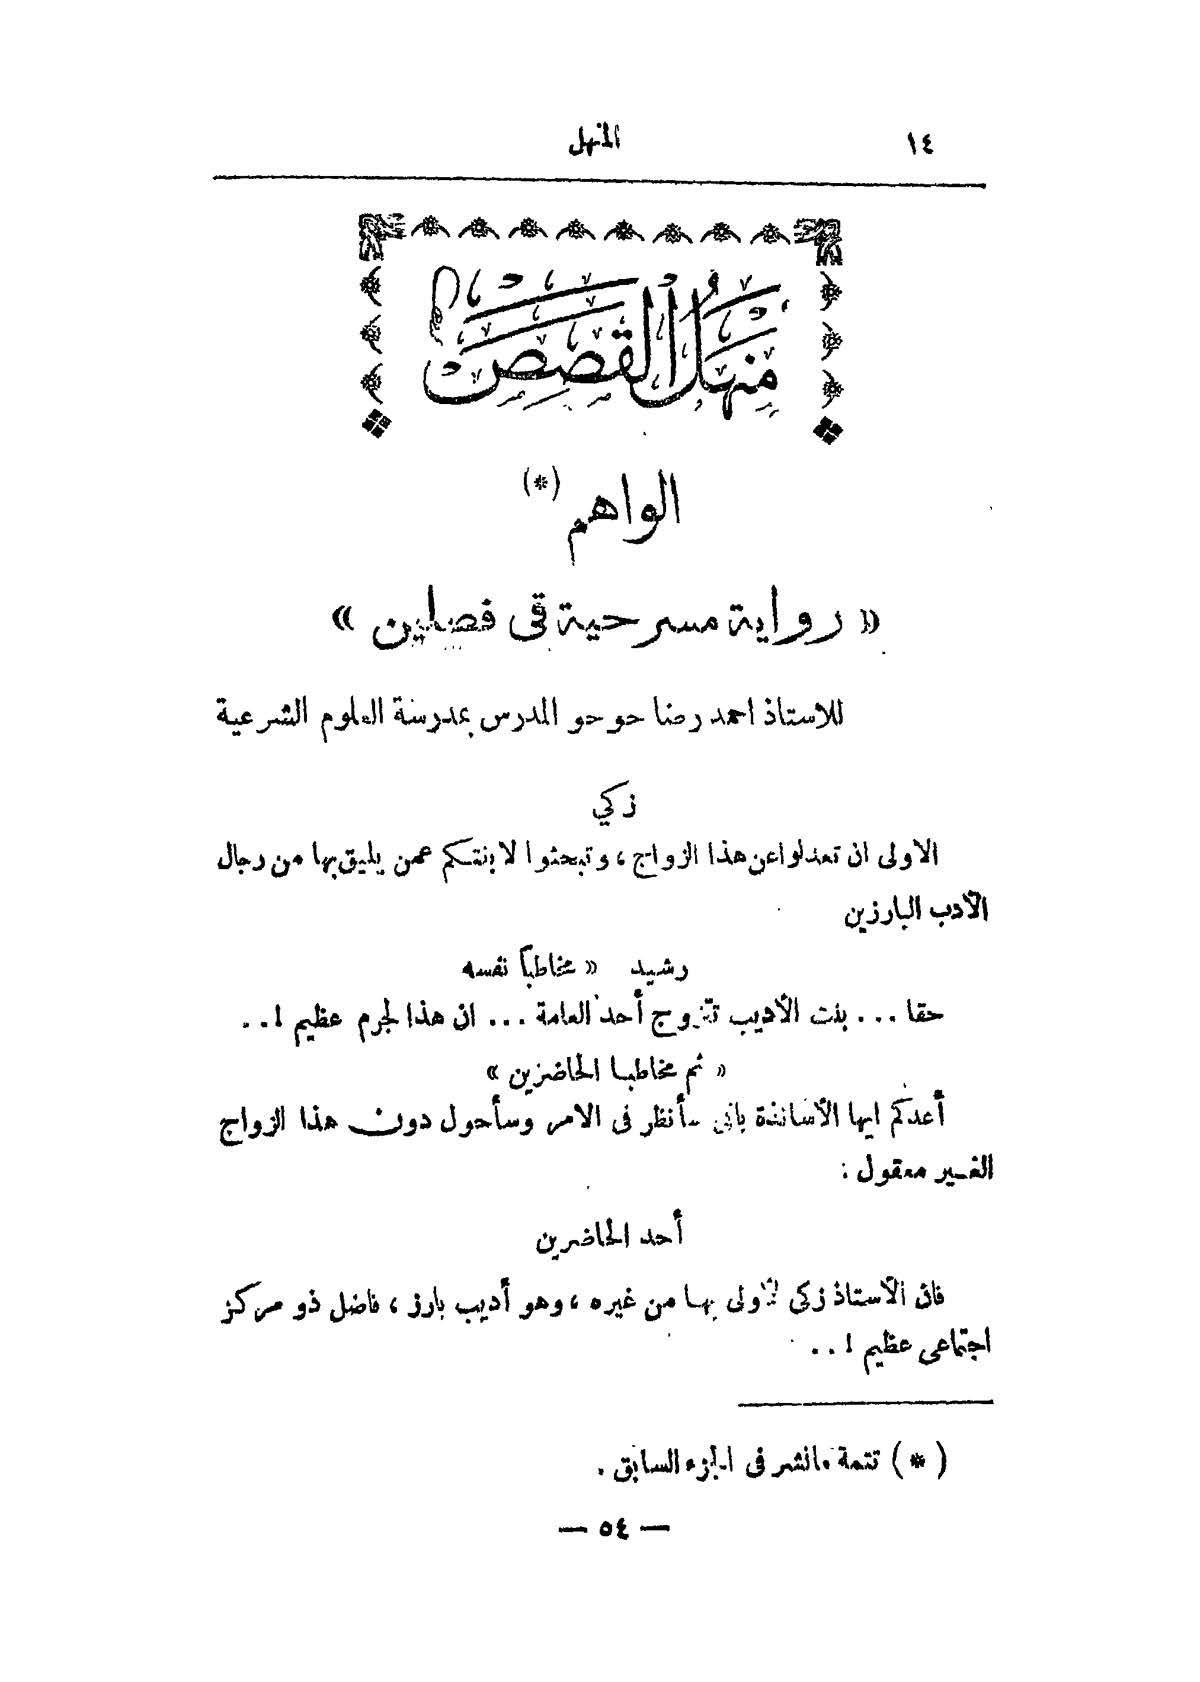 ١٤
المنهل
منهل القصص
الواهم (*)
« رواية مسرحية فى فصلين »
للاستاذ احمد رضا حوحو المدرس بمدرسة العلوم الشرعية
زكي
الاولى ان تعدلوا عن هذا الزواج ، وتبحثوا لابنتكم عمن يليق بها من رجال
الأدب البارزين
رشيد « مخاطباً نفسه
حقا ... بنت الأديب تتزوج أحد العامة ... ان هذا لجرم عظيم ! ..
« ثم مخاطبا الحاضرين »
أعدكم ايها الأساتذة بانى سأنظر فى الامر وسأحول دون هذا الزواج
الغير معقول :
أحد الحاضرين
فان الأستاذ زكى لأولى بها من غيره ، وهو أديب بارز ، فاضل ذو مركز
اجتماعى عظيم ! ..
( * ) تتمة مانشر فى الجزء السابق .
— ٥٤ —